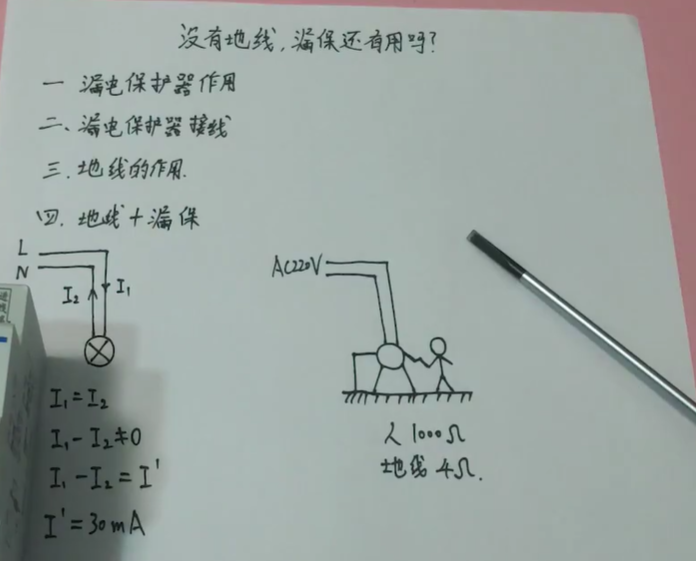 没有地线，漏保还有用吗?
一 漏电保护器作用
二、漏电保护器接线
三.地线的作用.
四.地线+漏保
L
N
I₂ I₁
AC220V
I₁=I₂
I₁-I₂≠0
I₁-I₂=I'
I'=30mA
人1000Ω
地线4Ω.